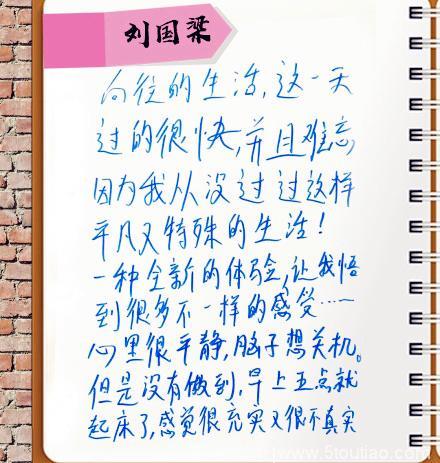 刘国梁
向往的生活,这一天
过的很快,并且难忘
因为我从没过过这样
平凡又特殊的生活!
一种全新的体验,让我悟
到很多不一样的感受……
心里很平静,脑子想关机。
但是没有做到,早上五点就
起床了,感觉很充实又很不真实
www.5toutiao.com